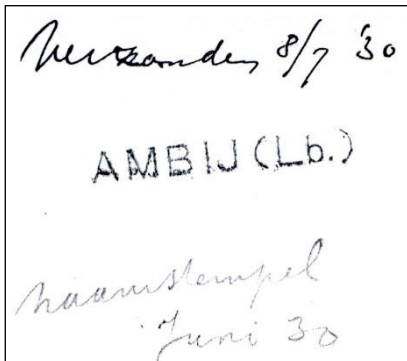 Verzonden 8/7 '30
AMBIJ (Lb.)
naamstempel
Juni 30